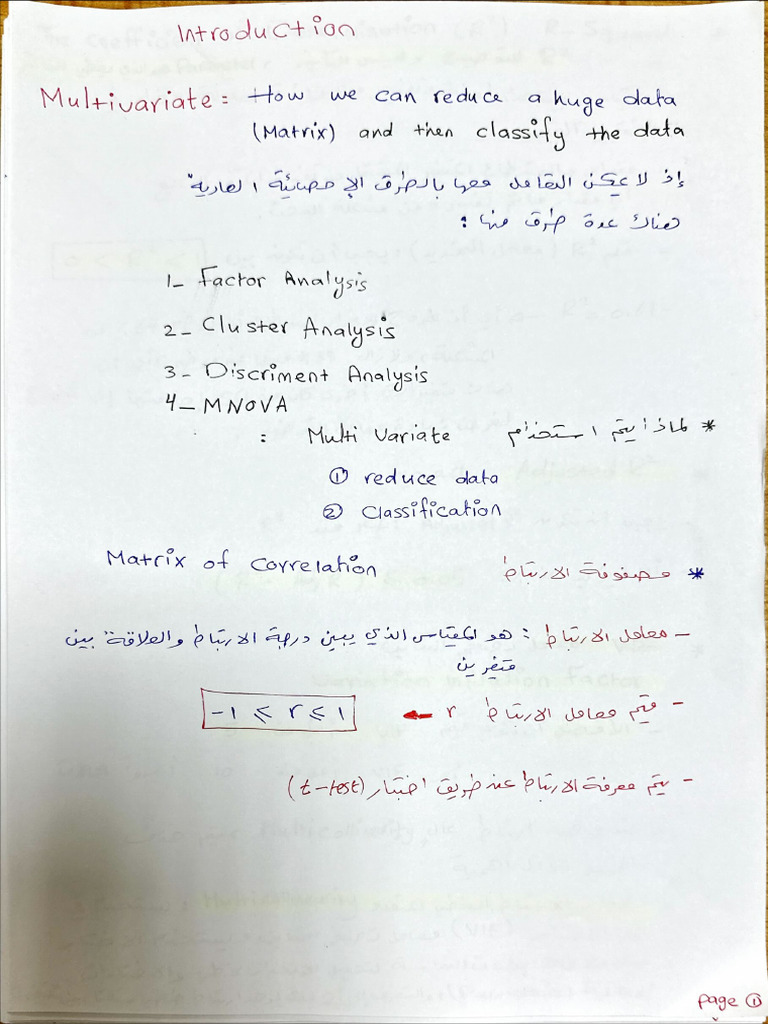 Introduction
Multivariate: How we can reduce a huge data
(Matrix) and then classify the data
إذ لا يمكن التعامل معها بالطرق الإحصائية العادية
هناك عدة طرق منها :
1- Factor Analysis
2- Cluster Analysis
3- Discriment Analysis
4- MNOVA
* لماذا يتم استخدام Multi Variate :
① reduce data
② Classification
* مصفوفة الارتباط Matrix of Correlation
- معامل الارتباط : هو المقياس الذي يبين درجة الارتباط والعلاقة بين
متغيرين
- قيم معامل الارتباط r ← -1 ⩽ r ⩽ 1
- يتم معرفة الارتباط عند طريق اختبار (t-test)
page ①